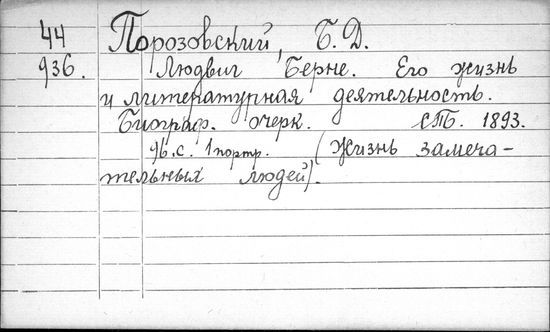 44 Порозовский, Б. Д.
936. Людвиг Берне. Его жизнь
и литературная деятельность.
Биограф. очерк. СПб. 1893.
96.с. 1 портр. (Жизнь замеча-
тельных людей).